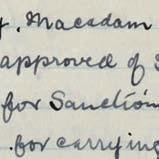 . Macadam
approved of
for Sanction
for carrying